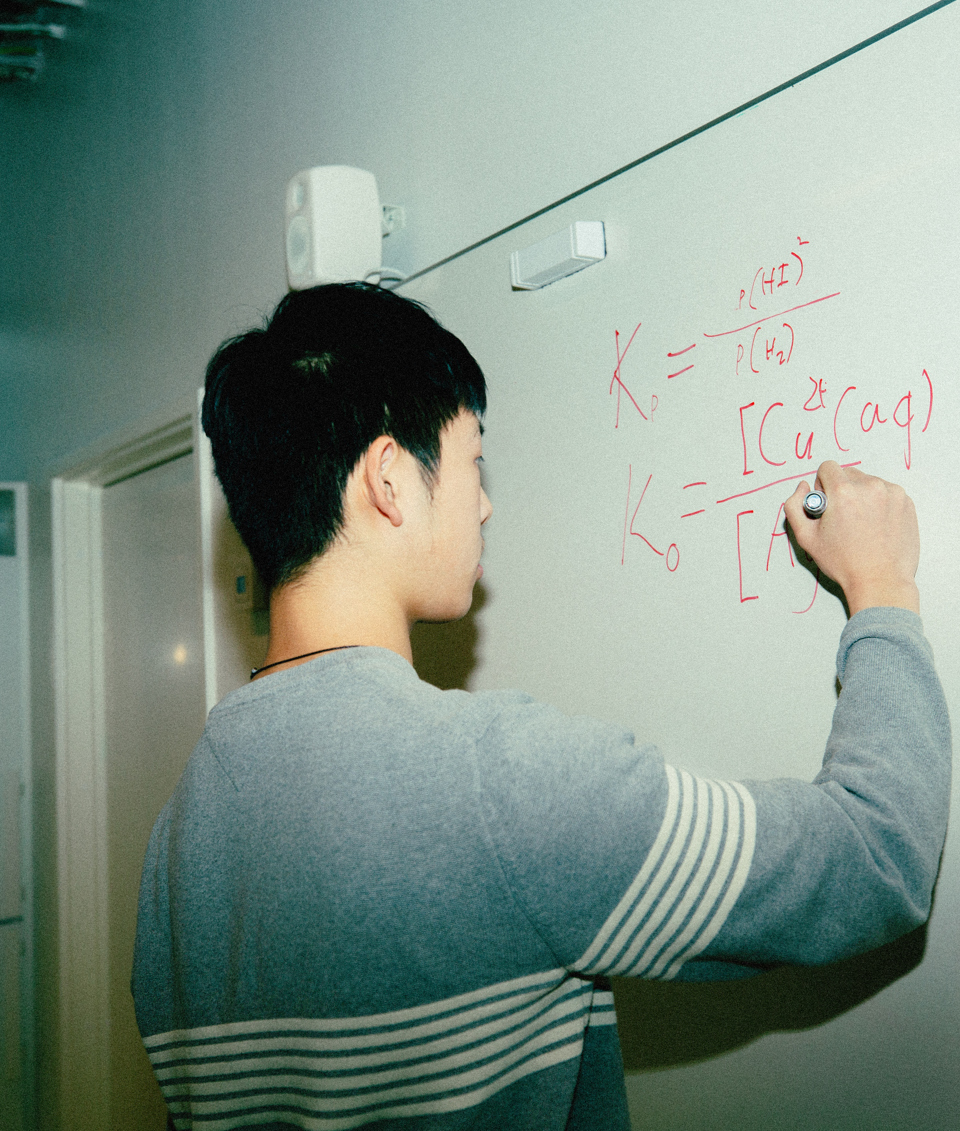 Kp = p(HI)²
p(H₂)
K₀ = [Cu²⁺(aq)
[Ag